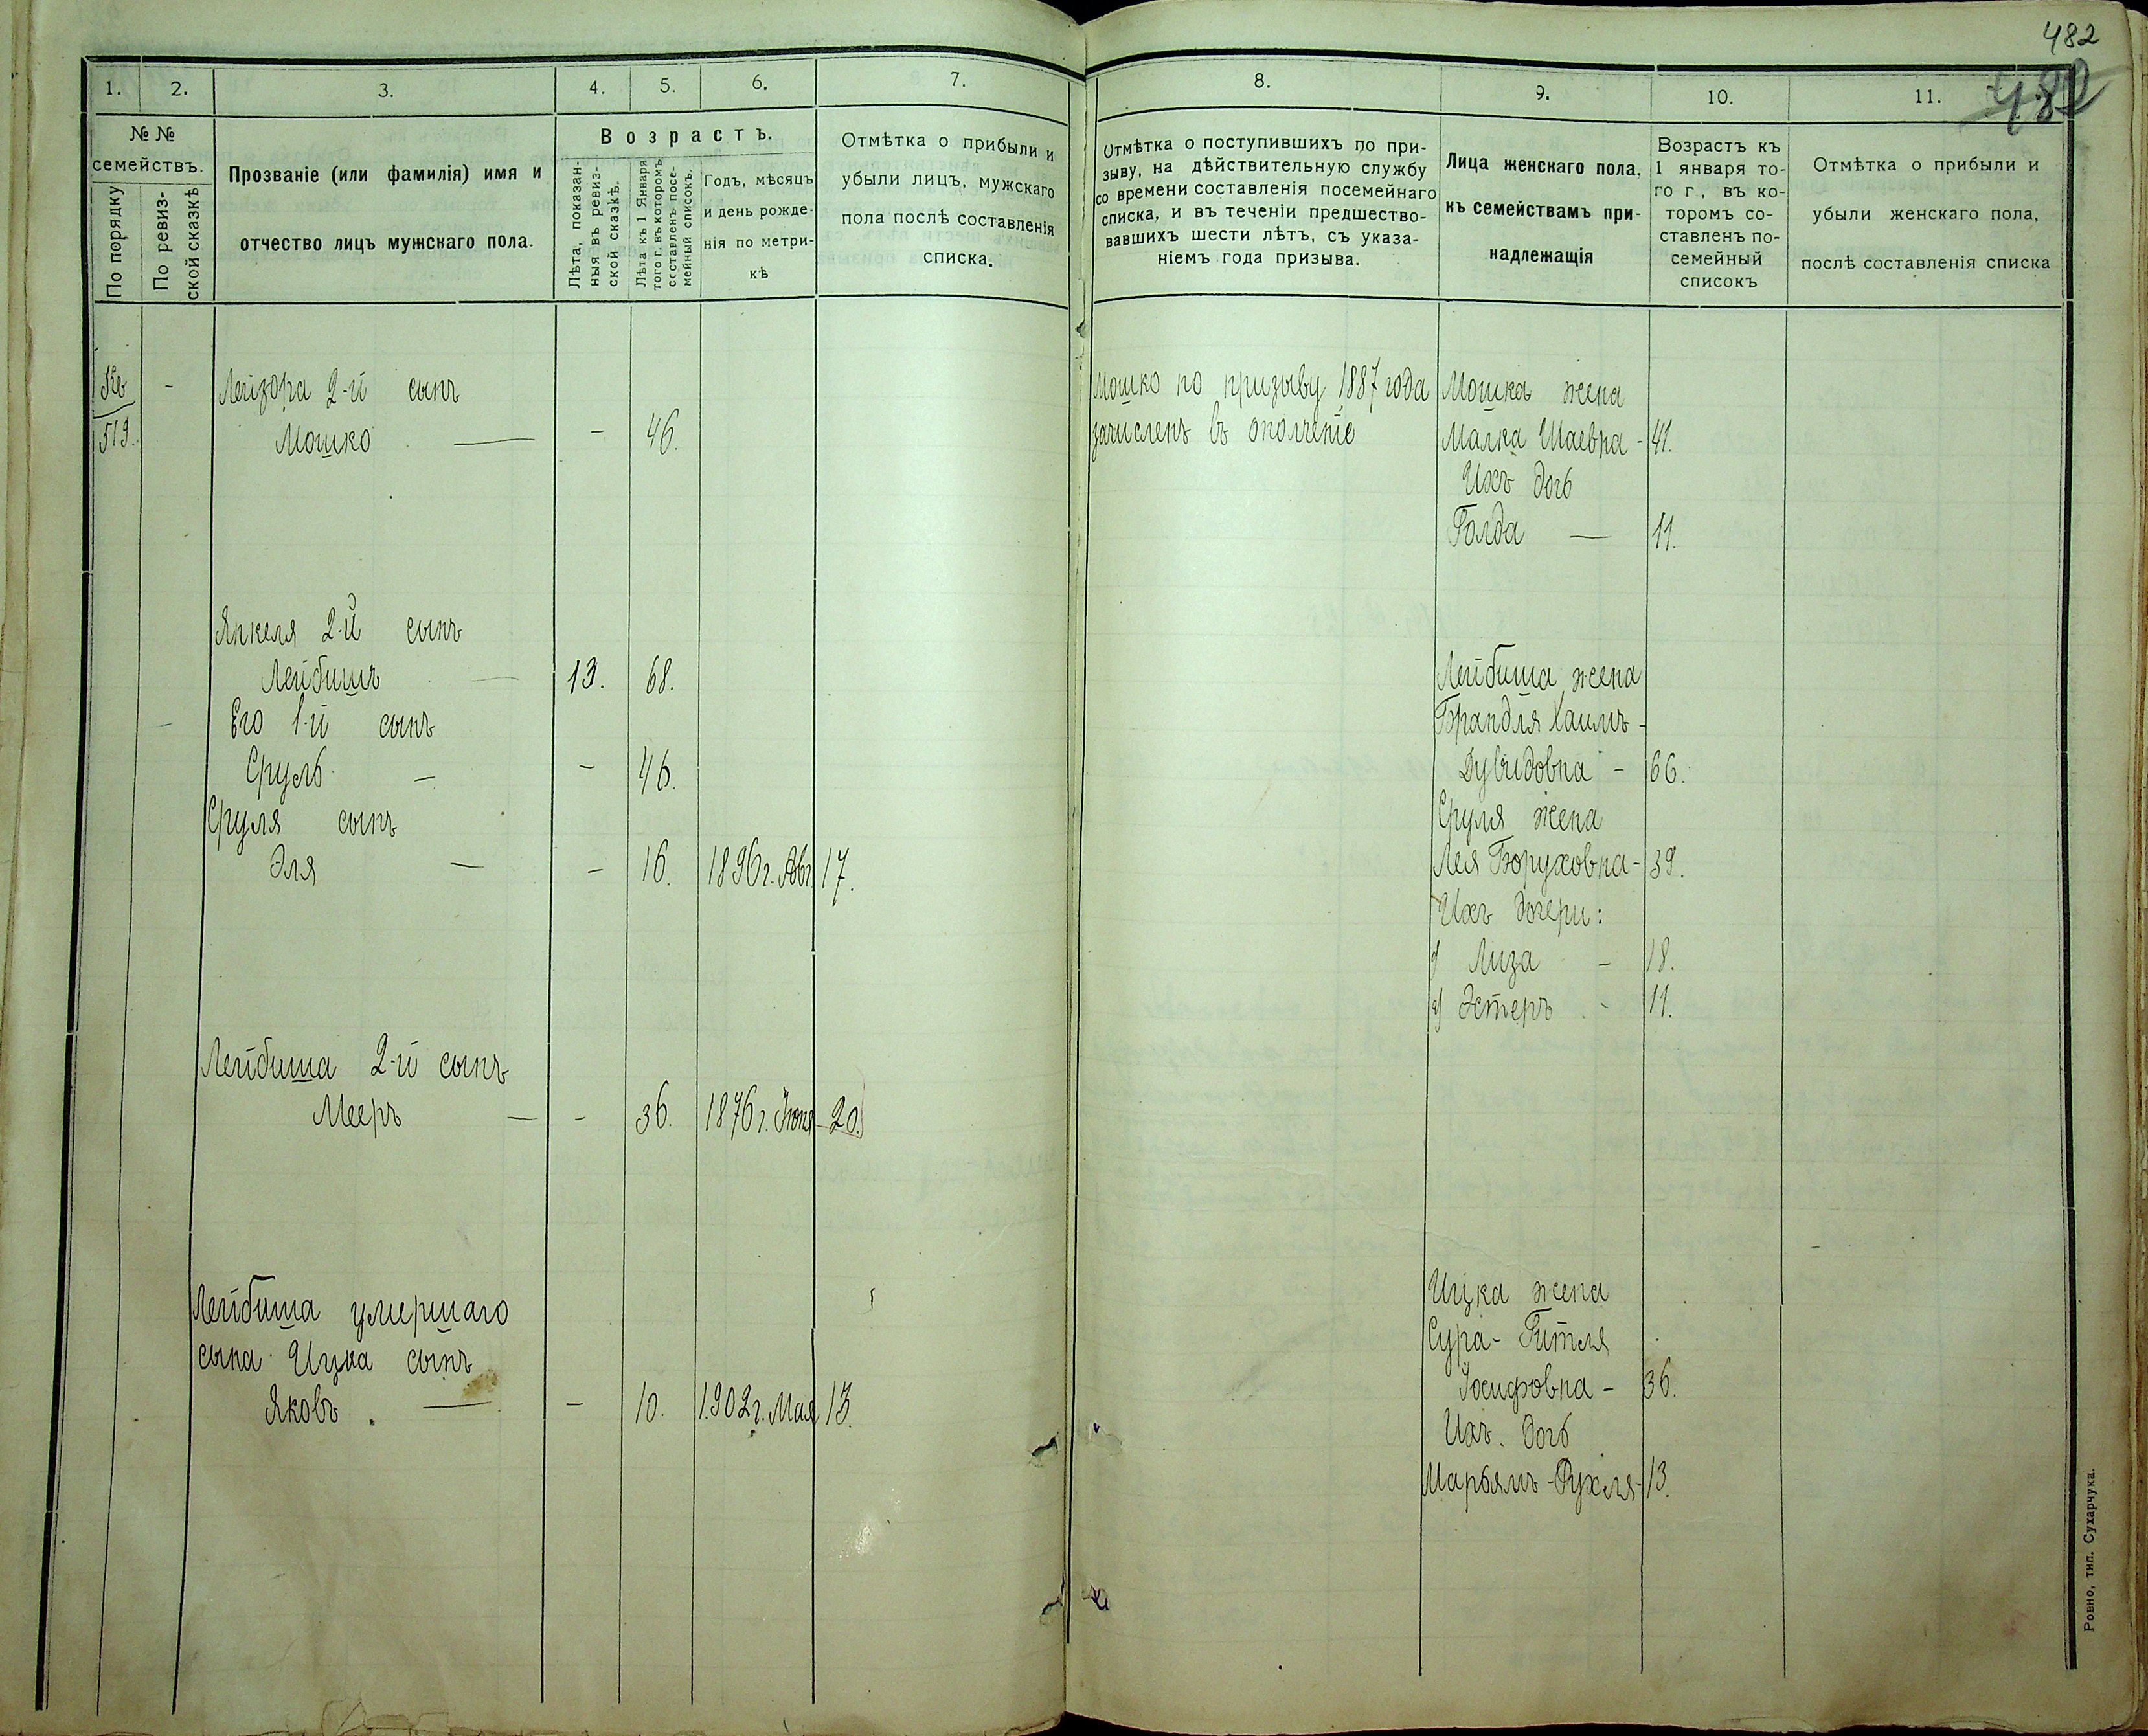 482
482
1. 2. 3. 4. 5. 6. 7.
№ № семействъ.
По порядку
По ревизской сказкѣ
Прозваніе (или фамилія) имя и
отчество лицъ мужскаго пола.
Возрастъ.
Лѣта, показан-
ныя въ ревиз-
ской сказкѣ.
Лѣта къ 1 Января
того г. въ которомъ
составленъ посе-
мейный списокъ.
Годъ, мѣсяцъ
и день рожде-
нія по метри-
кѣ
Отмѣтка о прибыли и
убыли лицъ, мужскаго
пола послѣ составленія
списка.
519.
Лейзора 2-й сынъ
Мошко — — 46.
Янкеля 2-й сынъ
Лейбишъ — 13. 68.
Его 1-й сынъ
Сруль — — 46.
Сруля сынъ
Эля — — 16. 1896 г. Авг. 17.
Лейбиша 2-й сынъ
Мееръ — — 36. 1876 г. Іюня 20.
Лейбиша умершаго
сына Ицка сынъ
Яковъ. — — 10. 1902 г. Мая 13.
8. 9. 10. 11.
Отмѣтка о поступившихъ по при-
зыву, на дѣйствительную службу
со времени составленія посемейнаго
списка, и въ теченіи предшество-
вавшихъ шести лѣтъ, съ указа-
ніемъ года призыва.
Лица женскаго пола,
къ семействамъ при-
надлежащія
Возрастъ къ
1 января то-
го г., въ ко-
торомъ со-
ставленъ по-
семейный
списокъ
Отмѣтка о прибыли и
убыли женскаго пола,
послѣ составленія списка
Мошко по призыву 1887 года
зачисленъ въ ополченіе
Мошка жена
Малка Шаевна - 41.
Ихъ дочь
Голда — 11.
Лейбиша жена
Брандля Хаимъ-
Дувидовна - 66.
Сруля жена
Лея Боруховна - 39.
Ихъ дочери:
1) Лиза - 18.
2) Эстеръ - 11.
Ицка жена
Сура-Гитля
Іосифовна - 36.
Ихъ дочь
Марьямъ-Рухля - 13.
Ровно, тип. Сухарчука.